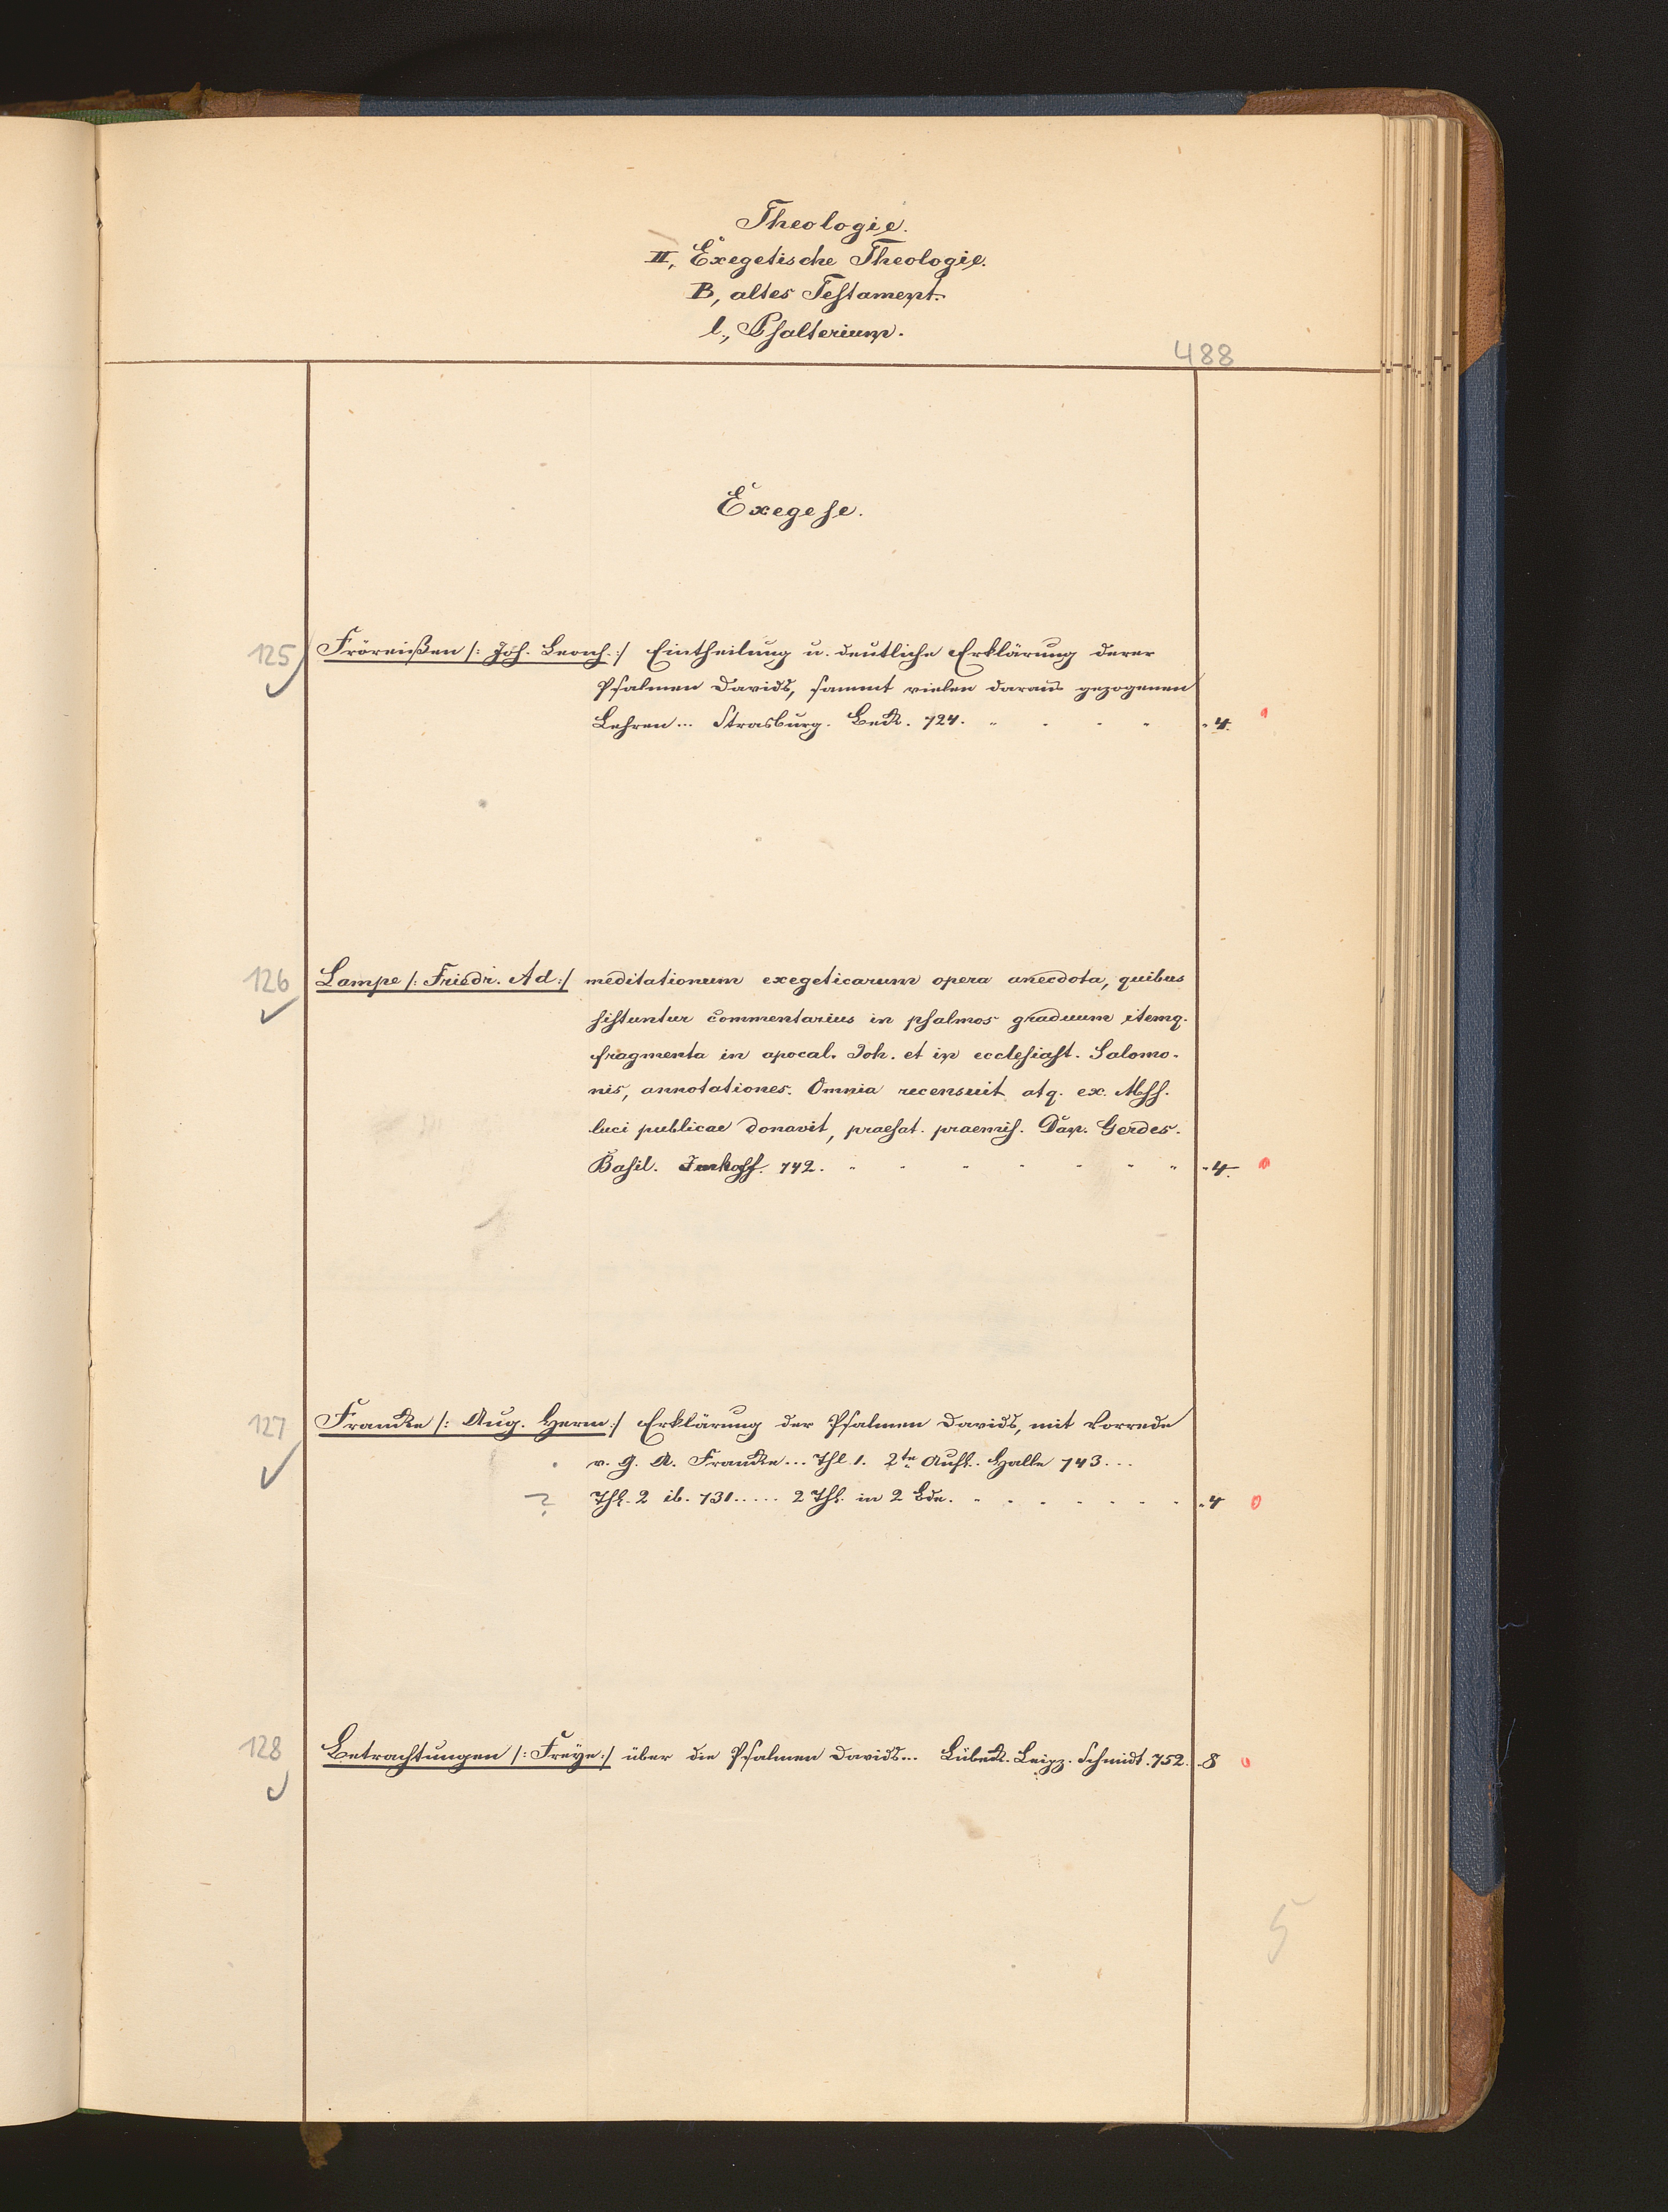 Theologie.
II, Exegetische Theologie.
B, altes Testament.
l., Psalterium.
488
Exegese.
125 Fröreißen /: Joh. Leonh. :/ Eintheilung u. deutliche Erklärung derer
Psalmen Davids, sammt vielen daraus gezogenen
Lehren... Strasburg. Beck. 724. " . . " "4.
126 Lampe /: Friedr. Ad :/ meditationum exegeticarum opera anecdota, quibus
sistuntur commentarius in psalmos graduum itemq.
fragmenta in apocal. Joh. et in ecclesiast. Salomo-
nis, annotationes. Omnia recensuit atq. ex. Mss.
luci publicae donavit, praefat. praemis. Dan. Gerdes.
Basil. Imhoff. 742. " " " " " " " "4.
127 Francke /: Aug. Herm :/ Erklärung der Psalmen Davids, mit Vorrede
v. G. A. Francke... Thl. 1. 2te Aufl. Halle 743...
? Thl. 2 ib. 731..... 2 Thl. in 2 Bdn. " . . . . . . "4
128 Betrachtungen /: Freye :/ über die Psalmen Davids... Lübeck. Leipz. Schmidt. 752. 8
5